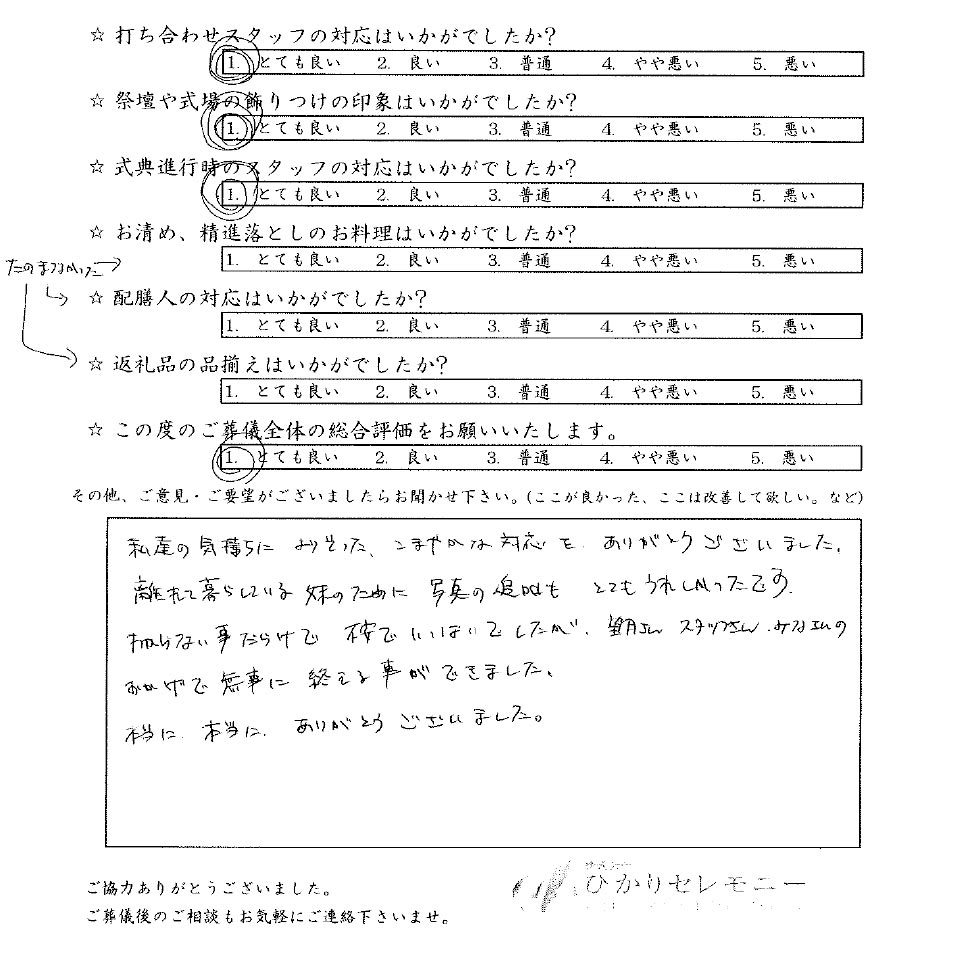 ☆ 打ち合わせスタッフの対応はいかがでしたか?
1. とても良い 2. 良い 3. 普通 4. やや悪い 5. 悪い
☆ 祭壇や式場の飾りつけの印象はいかがでしたか?
1. とても良い 2. 良い 3. 普通 4. やや悪い 5. 悪い
☆ 式典進行時のスタッフの対応はいかがでしたか?
1. とても良い 2. 良い 3. 普通 4. やや悪い 5. 悪い
☆ お清め、精進落としのお料理はいかがでしたか?
1. とても良い 2. 良い 3. 普通 4. やや悪い 5. 悪い
たのまなかった
☆ 配膳人の対応はいかがでしたか?
1. とても良い 2. 良い 3. 普通 4. やや悪い 5. 悪い
☆ 返礼品の品揃えはいかがでしたか?
1. とても良い 2. 良い 3. 普通 4. やや悪い 5. 悪い
☆ この度のご葬儀全体の総合評価をお願いいたします。
1. とても良い 2. 良い 3. 普通 4. やや悪い 5. 悪い
その他、ご意見・ご要望がございましたらお聞かせ下さい。(ここが良かった、ここは改善して欲しい。など)
私達の気持ちに よりそった、こまやかな対応を ありがとうございました。
離れて暮らしている 妹のために 写真の も とてもうれしかったです。
わからない事だらけで 不安でいっぱいでしたが、望月さん スタッフさん、みなさんの
おかげで無事に 終える事ができました。
本当に、本当に、ありがとうございました。
ご協力ありがとうございました。
ご葬儀後のご相談もお気軽にご連絡下さいませ。
ひかりセレモニー